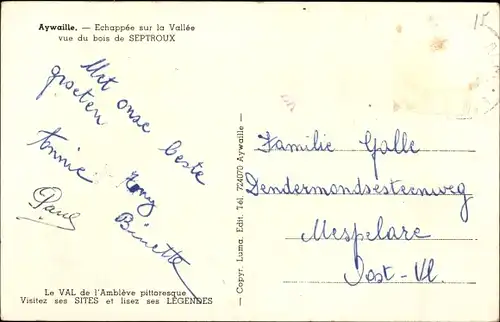 Aywaille. — Echappée sur la Vallée
vue du bois de SEPTROUX
Met onze beste
groeten
Annie Tony
Binette
Paul
Le VAL de l'Amblève pittoresque
Visitez ses SITES et lisez ses LÉGENDES
Copyr. Luma. Edit. Tél. 724070 Aywaille
15
Familie Galle
Dendermondsesteenweg
Mespelare
Oost-Vl.